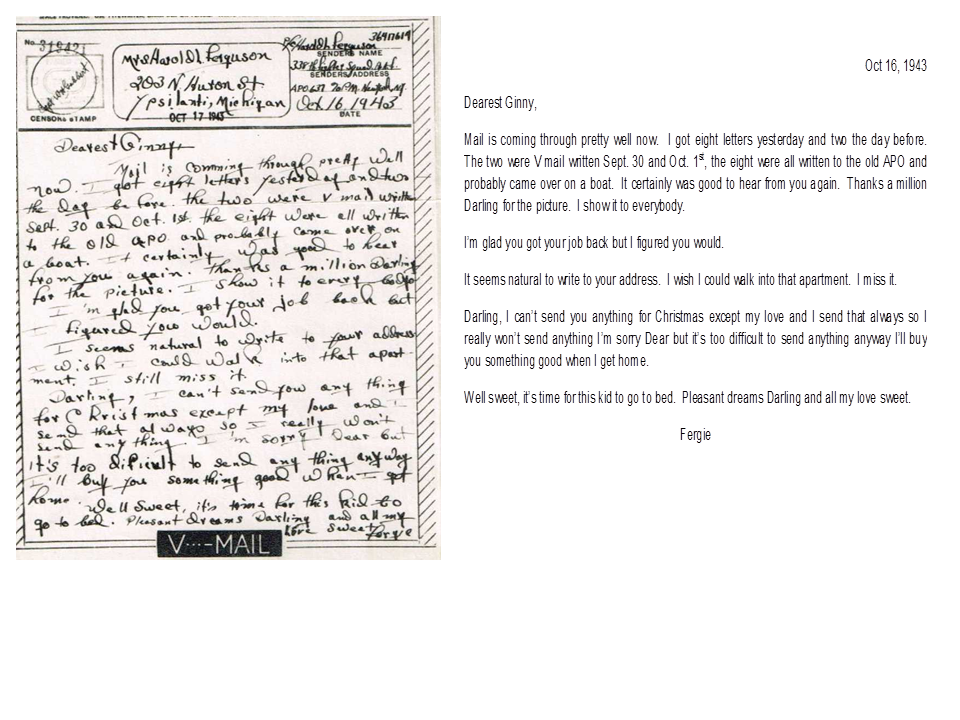 No. 319421
CENSOR'S STAMP
Mrs Harold L Ferguson
203 N Huron St.
Ypsilanti, Michigan
OCT 17 1943
36417619
Pfc Harold L Ferguson
SENDER'S NAME
SENDER'S ADDRESS
Oct 16, 1943
DATE
Dearest Ginny,
Mail is comming through pretty well
now. I got eight letters yesterday and two
the day before. the two were V mail written
Sept. 30 and Oct. 1st. the eight were all written
to the old APO and probably came over on
a boat. It certainly was good to hear
from you again. Thanks a million Darling
for the picture. I show it to every body
I'm glad you got your job back but
I figured you would.
I seems natural to write to your address
I wish I could walk into that apart-
ment. I still miss it.
Darling, I can't send you any thing
for Christmas except my love and I
send that always so I really won't
send any thing. I'm sorry Dear but
it's too dificult to send any thing anyway
I'll buy you something good when I get
home.
Well sweet, it's time for this kid to
go to bed. Pleasant dreams Darling and all my
love sweet
Fergie
V···-MAIL
Oct 16, 1943
Dearest Ginny,
Mail is coming through pretty well now. I got eight letters yesterday and two the day before.
The two were V mail written Sept. 30 and Oct. 1st, the eight were all written to the old APO and
probably came over on a boat. It certainly was good to hear from you again. Thanks a million
Darling for the picture. I show it to everybody.
I'm glad you got your job back but I figured you would.
It seems natural to write to your address. I wish I could walk into that apartment. I miss it.
Darling, I can't send you anything for Christmas except my love and I send that always so I
really won't send anything I'm sorry Dear but it's too difficult to send anything anyway I'll buy
you something good when I get home.
Well sweet, it's time for this kid to go to bed. Pleasant dreams Darling and all my love sweet.
Fergie